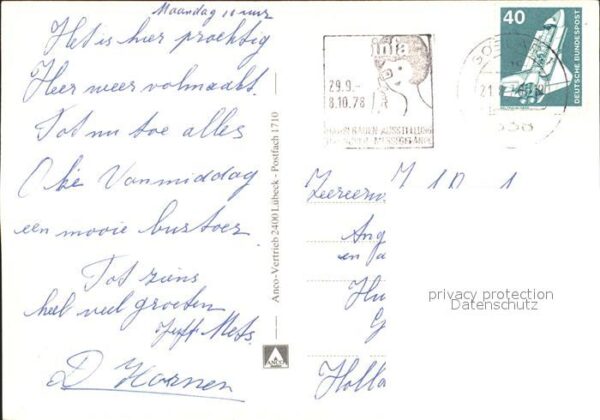 Maandag 10 uur
Het is hier prachtig
Heer weer volmaakt.
Tot nu toe alles
Oke Vanmiddag
een mooie bustoer
Tot ziens
heel veel groeten
Juff. Mets.
D Hornen
Anco-Vertrieb 2400 Lübeck - Postfach 1710
ANCO
infa
29.9.-
8.10.78
AUSSTELLUNG
40
DEUTSCHE BUNDESPOST
Zeereerw
Ang
en
Hu
Holla
privacy protection
Datenschutz